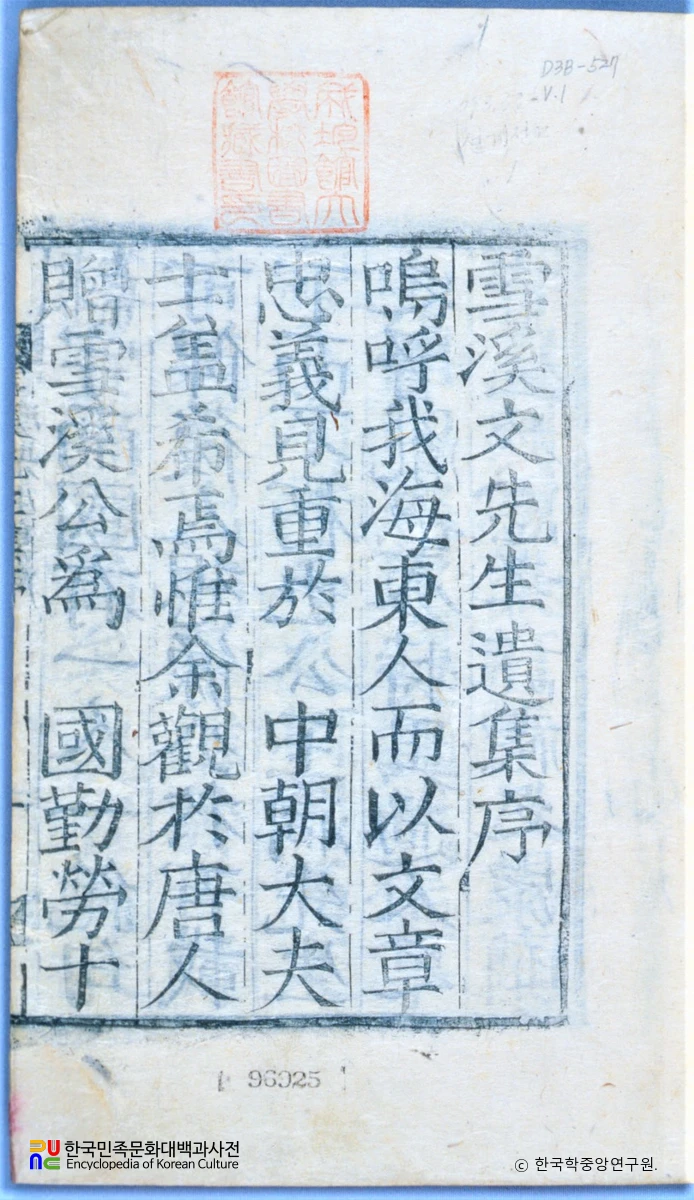 D3B-527
V.1
雪溪文先生遺集序
嗚呼我海東人而以文章
忠義見重於 中朝大夫
士盖希焉惟余觀於唐人
贈雪溪公爲 國勤勞十
96925
한국민족문화대백과사전
Encyclopedia of Korean Culture
ⓒ 한국학중앙연구원.